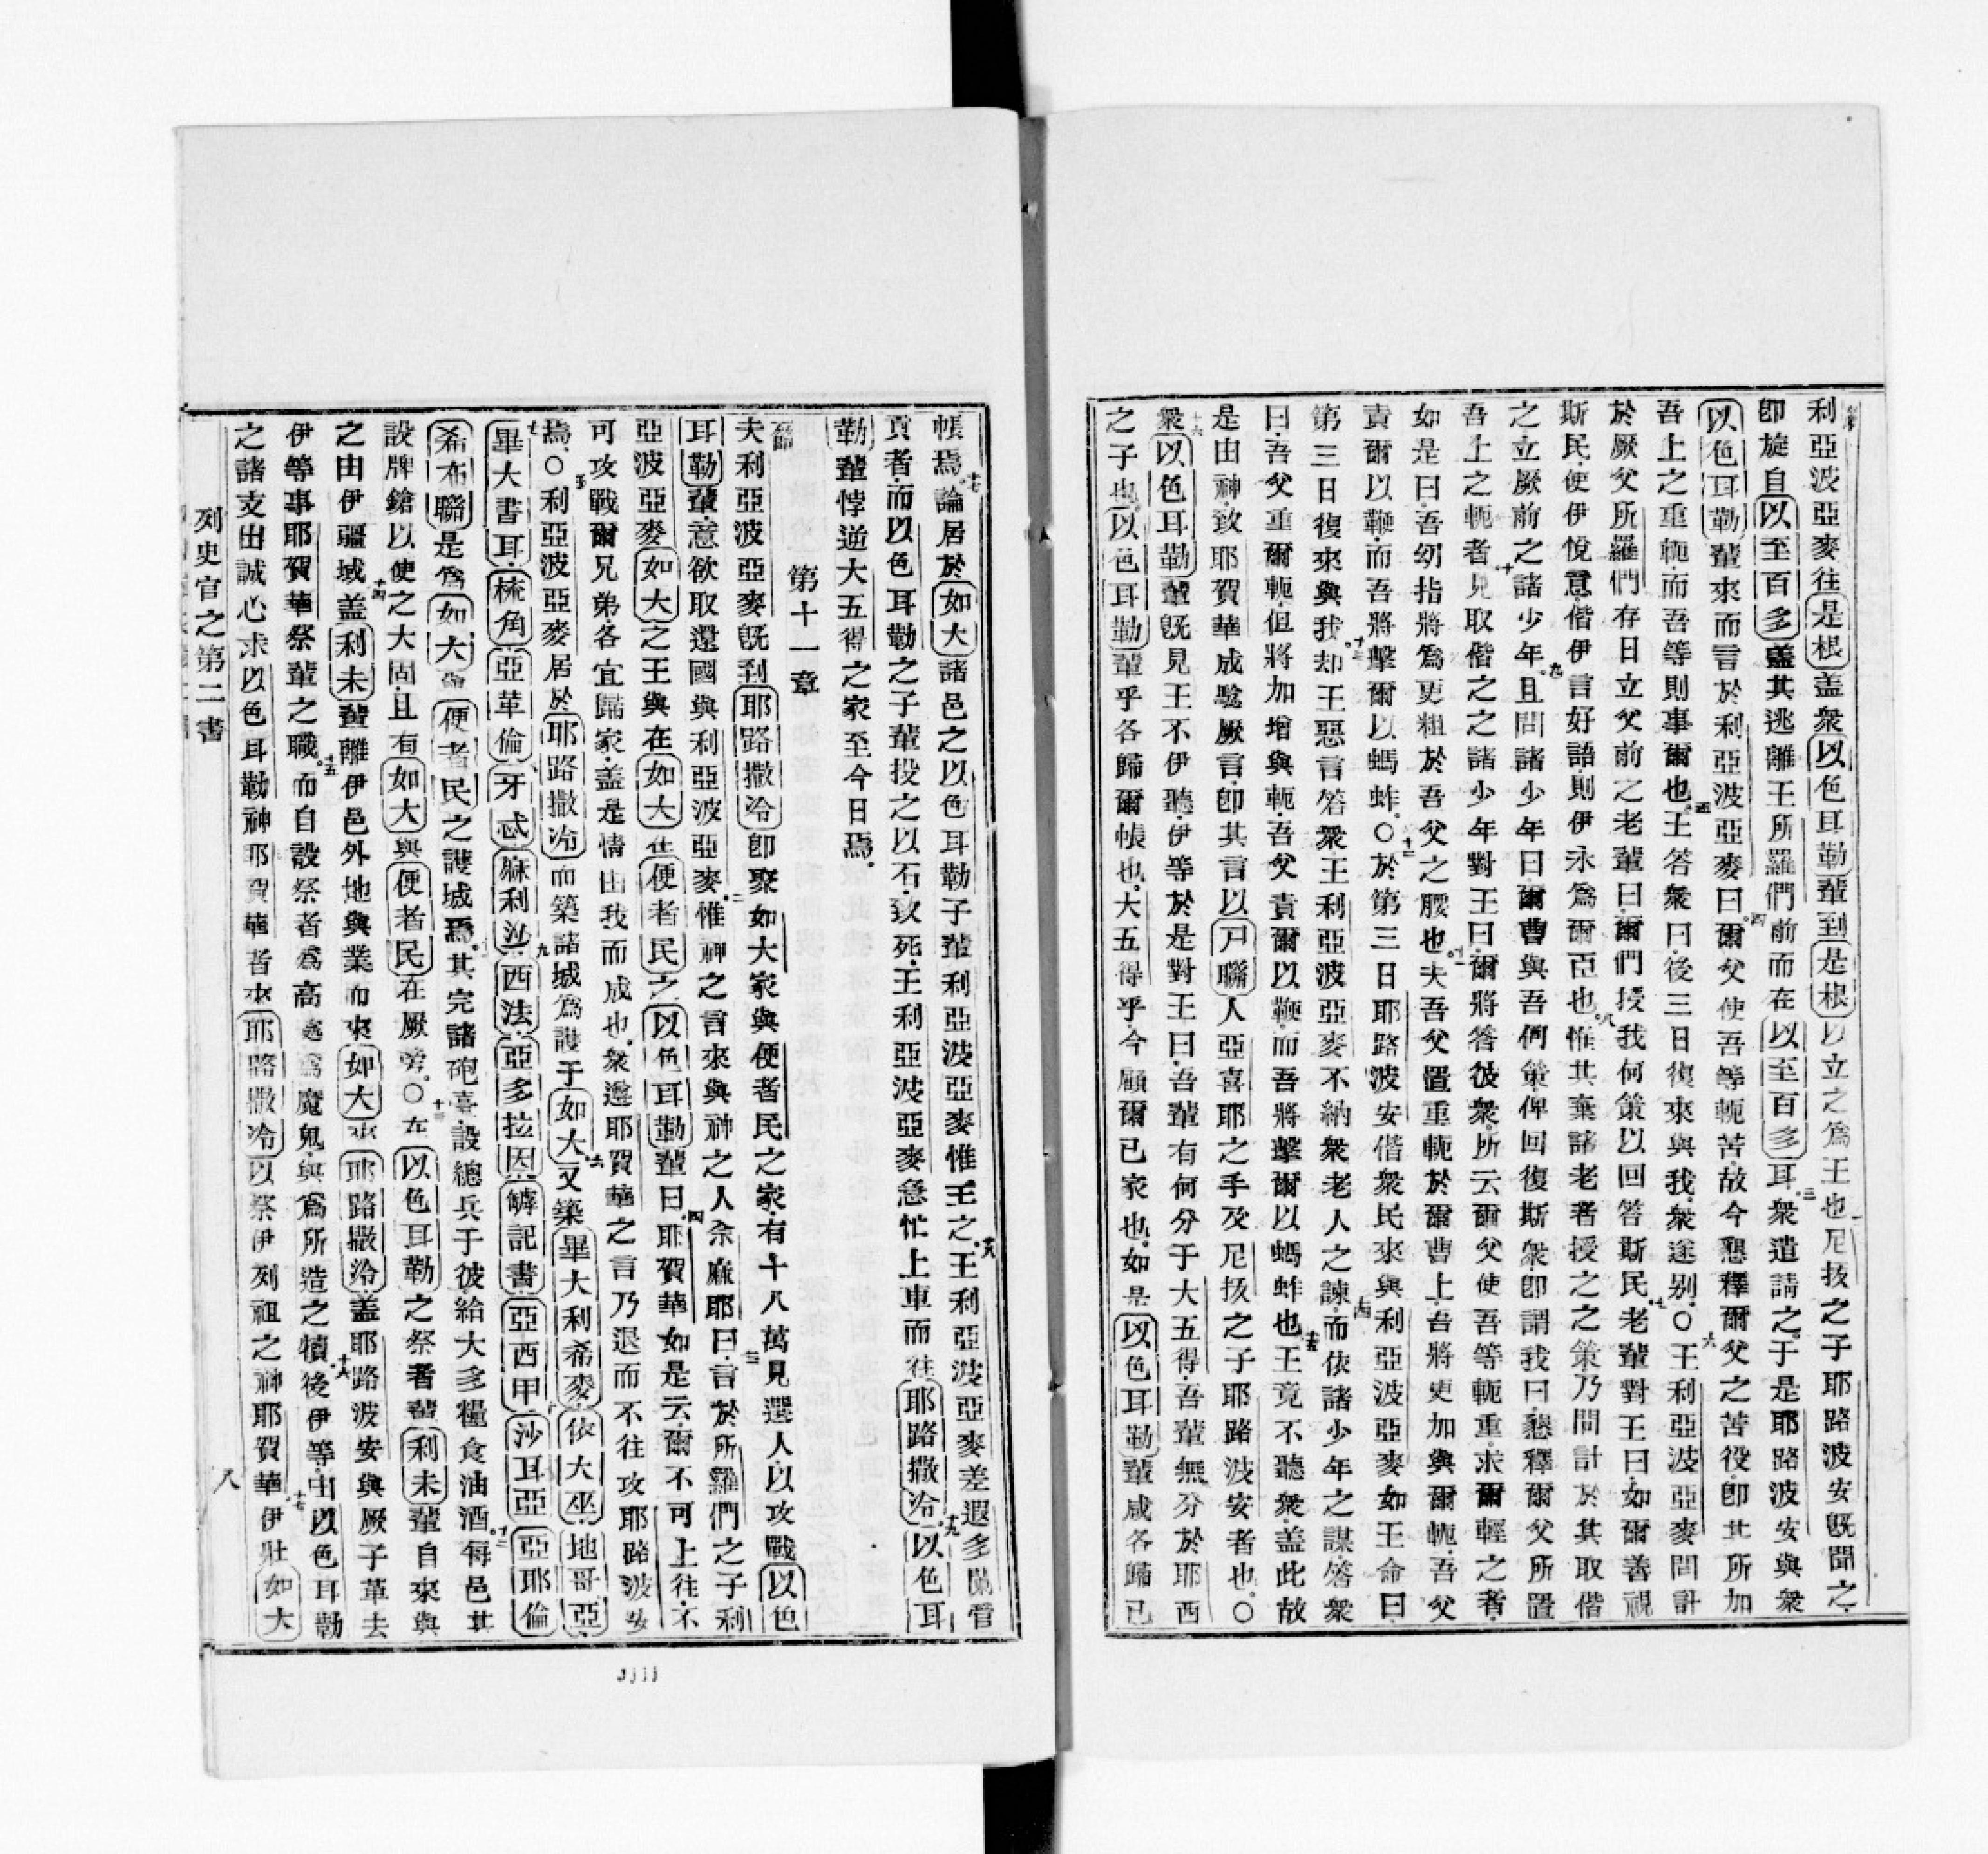 利亞波亞麥往是根盖衆以色耳勒輩到是根以立之爲王也尼拔之子耶路波安旣聞之
卽旋自以至百多盖其逃離王所羅們前而在以至百多耳三衆遣請之于是耶路波安與衆
以色耳勒輩來而言於利亞波亞麥曰四爾父使吾等軛苦故今懇釋爾父之苦役卽其所加
吾上之重軛而吾等則事爾也五王答衆曰後三日復來與我衆遂别〇六王利亞波亞麥問計
於厥父所羅們存日立父前之老輩曰爾們授我何策以回答斯民七老輩對王曰如爾善視
斯民使伊悅意偕伊言好語則伊永爲爾臣也八惟其棄諸老者授之之策乃問計於其取偕
之立厥前之諸少年九且問諸少年曰爾曹與吾何策俾回復斯衆卽謂我曰懇釋爾父所置
吾上之軛者十見取偕之之諸少年對王曰爾將答彼衆所云爾父使吾等軛重求爾輕之者
如是曰吾幼指將爲更粗於吾父之腰也十一夫吾父置重軛於爾曹上吾將更加與爾軛吾父
責爾以鞭而吾將擊爾以螞蚱〇十二於第三日耶路波安偕衆民來與利亞波亞麥如王命曰
第三日復來與我十三却王惡言答衆王利亞波亞麥不納衆老人之諫十四而依諸少年之謀答衆
曰吾父重爾軛但將加增與軛吾父責爾以鞭而吾將擊爾以螞蚱也十五王竟不聽衆盖此故
是由神致耶賀華成騐厥言卽其言以戸聯人亞喜耶之手及尼拔之子耶路波安者也〇
十六衆以色耳勒輩旣見王不伊聽伊等於是對王曰吾輩有何分于大五得吾輩無分於耶西
之子也以色耳勒輩乎各歸爾帳也大五得乎今顧爾已家也如是以色耳勒輩咸各歸已
帳焉十七論居於如大諸邑之以色耳勒子輩利亞波亞麥惟王之十八王利亞波亞麥差遐多闌管
貢者而以色耳勒之子輩投之以石致死王利亞波亞麥急忙上車而往耶路撒冷十九以色耳
勒輩悖逆大五得之家至今日焉
第十一章
夫利亞波亞麥旣到耶路撒冷卽聚如大家與便者民之家有十八萬見選人以攻戰以色
耳勒輩意欲取還國與利亞波亞麥二惟神之言來與神之人佘麻耶曰三言於所羅們之子利
亞波亞麥如大之王與在如大在便者民之以色耳勒輩曰四耶賀華如是云爾不可上往不
可攻戰爾兄弟各宜歸家盖是情由我而成也衆遵耶賀華之言乃退而不往攻耶路波安
焉〇五利亞波亞麥居於耶路撒冷而築諸城爲護于如大六又築畢大利希麥依大巫地哥亞
七畢大書耳梳角亞革倫八牙忒麻利沙西法九亞多拉因觪記書亞西甲十沙耳亞亞耶倫
希布聯是爲如大與便者民之護城焉其完諸砲臺設總兵于彼給大多糧食油酒十二每邑其
設牌鎗以使之大固且有如大與便者民在厥旁〇十三在以色耳勒之祭者輩利未輩自來與
之由伊疆域十四盖利未輩離伊邑外地與業而來如大來耶路撒冷盖耶路波安與厥子革去
伊等事耶賀華祭輩之職十五而自設祭者爲高處爲魔鬼與爲所造之犢十六後伊等由以色耳勒
之諸支出誠心求以色耳勒神耶賀華者來耶路撒冷以祭伊列祖之神耶賀華十七伊壯如大
列史官之第二書 八